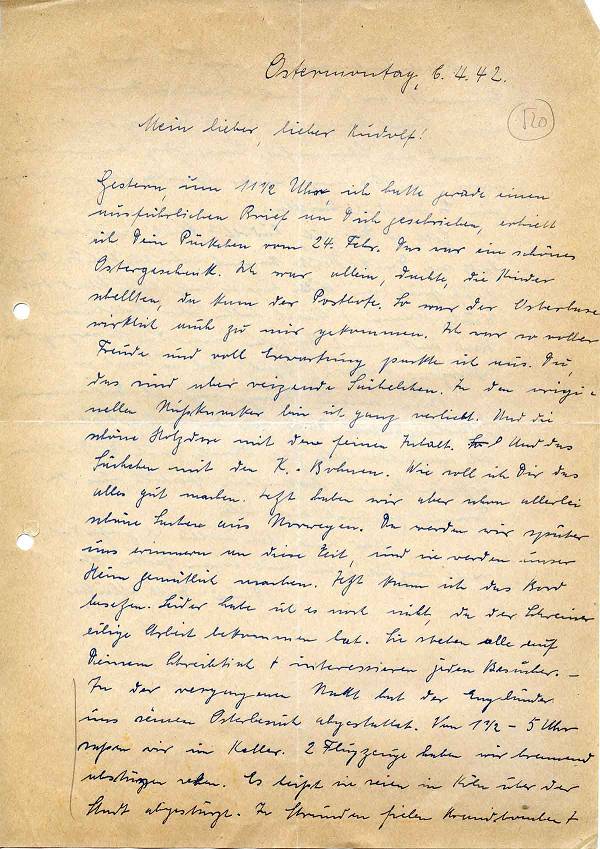 Ostermontag, 6.4.42.
120
Mein lieber, lieber Rudolf!
Gestern, um 11 1/2 Uhr, ich hatte gerade einen
ausführlichen Brief an Dich geschrieben, erhielt
ich Dein Päckchen vom 24. Febr. Das war ein schönes
Ostergeschenk. Ich war allein, dachte, die Kinder
schellten, da kam der Postbote. So war der Osterhase
wirklich auch zu mir gekommen. Ich war so voller
Freude und voll Erwartung packte ich aus. Du,
das sind aber reizende Sächelchen. In den origi-
nellen Nußknacker bin ich ganz verliebt. Und die
schöne Holzdose mit dem feinen Inhalt. Und das
Säckchen mit den K.-Bohnen. Wie soll ich Dir das
alles gut machen. Jetzt haben wir aber schon allerlei
schöne Sachen aus Norwegen. Da werden wir später
uns erinnern an diese Zeit, und sie werden unser
Heim gemütlich machen. Jetzt kann ich das Bord
besetzen. Leider habe ich es noch nicht, da der Schreiner
eilige Arbeit bekommen hat. Sie stehen alle auf
Deinem Schreibtisch + interessieren jeden Besucher. —
In der vergangenen Nacht hat der Engländer
uns seinen Osterbesuch abgestattet. Von 1 1/2 – 5 Uhr
saßen wir im Keller. 2 Flugzeuge haben wir brennend
abstürzen sehen. Es heißt sie seien in Köln über der
Stadt abgestürzt. In fielen Brandbomben +